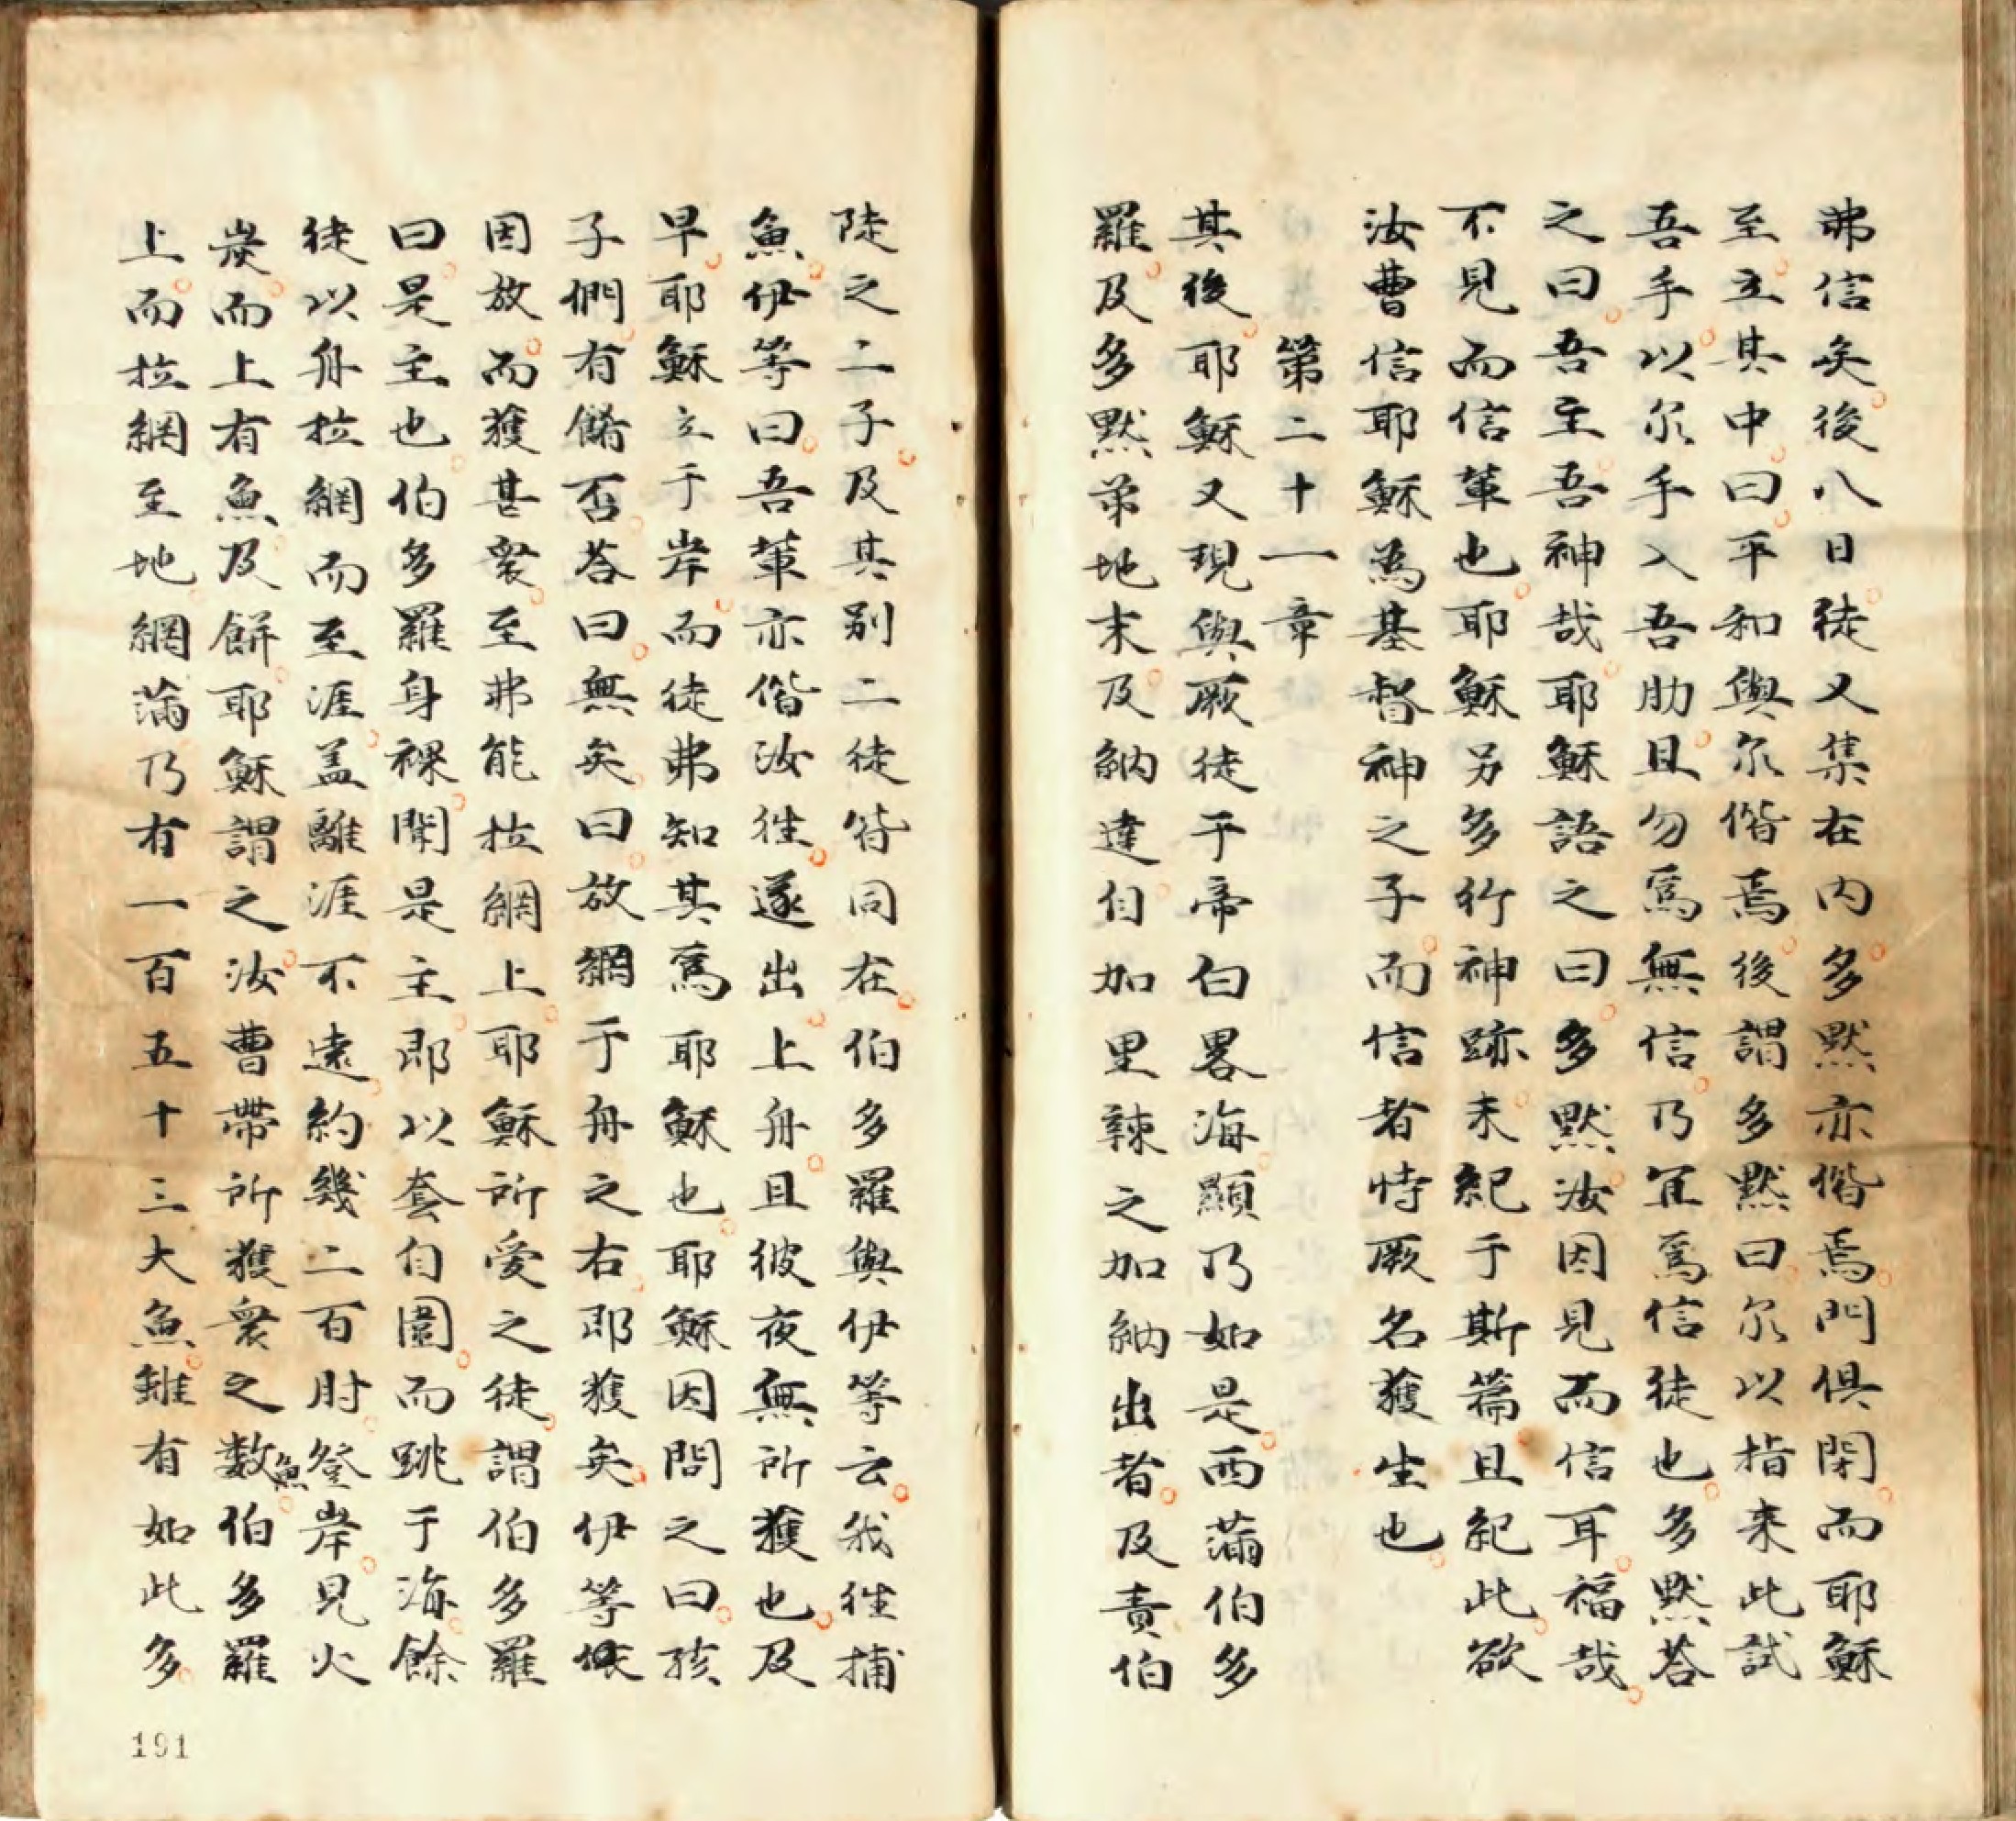 弗信矣後八日徒又集在内多黙亦偕焉門俱閉而耶穌
至立其中曰平和與尔偕焉後謂多黙曰尔以指来此試
吾手以尔手入吾肋且勿爲無信乃宜爲信徒也多黙荅
之曰吾主吾神哉耶穌語之曰多黙汝因見而信耳福哉
不見而信軰也耶穌另多行神跡未紀于斯篇且紀此欲
汝曹信耶穌爲基督神之子而信者恃厥名獲生也
第二十一章
其後耶穌又現與厥徒于帝白畧海顯乃如是西滿伯多
羅及多黙弟地末及納達自加里辣之加納出者及責伯
陡之二子及其别二徒待同在伯多羅與伊等云我徃捕
魚伊等曰吾軰亦偕汝徃遂出上舟且彼夜無所獲也及
早耶穌立于岸而徒弗知其爲耶穌也耶穌因問之曰孩
子們有餚否荅曰無矣曰放網于舟之右即獲矣伊等俟
因放而獲甚衆至弗能拉網上耶穌所愛之徒謂伯多羅
曰是主也伯多羅身裸聞是主即以套自圍而跳于海餘
徒以舟拉網而至涯盖離涯不遠約幾二百肘魚登岸見火
炭而上有魚及餅耶穌謂之汝曹帶所獲衆之数伯多羅
上而拉網至地網滿乃有一百五十三大魚雖有如此多
191